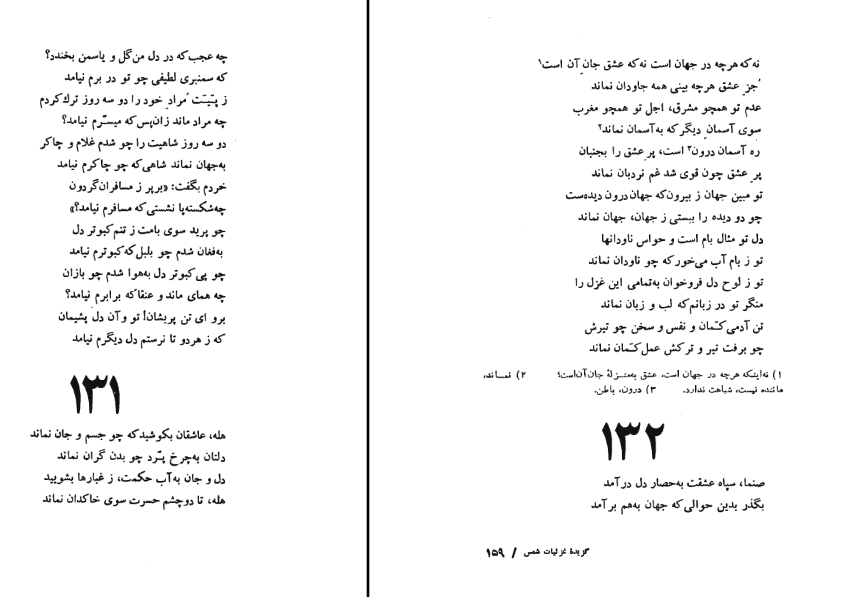 چه عجب‌که در دل من‌گل و یاسمن بخندد؟
که سمنبری لطیفی چو تو در برم نیامد
ز پَیَت مُراد خود را دو سه روز ترك‌کردم
چه مراد ماند زان‌پس‌که میسّرم نیامد؟
دو سه روز شاهیت را چو شدم غلام و چاکر
به‌جهان نماند شاهی‌که چو چاکرم نیامد
خردم بگفت: «برپر ز مسافران‌گردون
چه‌شکسته‌پا نشستی‌که مسافرم نیامد؟»
چو پرید سوی بامت ز تنم‌کبوتر دل
به‌فغان شدم چو بلبل‌که‌کبوترم نیامد
چو پی‌کبوتر دل به‌هوا شدم چو بازان
چه همای ماند و عنقاکه برابرم نیامد؟
برو ای تن پریشان! تو وآن دل پشیمان
که ز هردو تا نرستم دل دیگرم نیامد
۱۳۱
هله، عاشقان بکوشیدکه چو جسم و جان نماند
دلتان به‌چرخ پَرّد چو بدن گران نماند
دل و جان به‌آب حکمت، ز غبارها بشویید
هله، تا دوچشم حسرت سوی خاکدان نماند
نه که‌هرچه در جهان است نه‌که عشق جانِ آن است۱
جُز عشق هرچه بینی همه جاودان نماند
عدم تو همچو مشرق، اجل تو همچو مغرب
سوی آسمانِ دیگرکه به‌آسمان نماند۲
ره آسمان درون۳ است، پرِ عشق را بجنبان
پرِ عشق چون قوی شد غم نردبان نماند
تو مبین جهان ز بیرون‌که جهان‌درون دیده‌ست
چو دو دیده را ببستی ز جهان، جهان نماند
دل تو مثال بام است و حواس ناودانها
تو ز بام آب می‌خورکه چو ناودان نماند
تو ز لوح دل فروخوان به‌تمامی این غزل را
منگر تو در زبانم‌که لب و زبان نماند
تن آدمی‌کمان و نفس و سخن چو تیرش
چو برفت تیر و ترکش عمل‌کمان نماند
۱) نه‌اینکه هرچه در جهان است، عشق به‌منزلهٔ جان‌آن‌است؟ ۲) نماند،
ماننده نیست، شباهت ندارد. ۳) درون، باطن.
۱۳۲
صنما، سپاه عشقت به‌حصار دل درآمد
بگذر بدین حوالی‌که جهان به‌هم برآمد
گزیدهٔ غزلیات شمس / ۱۵۹